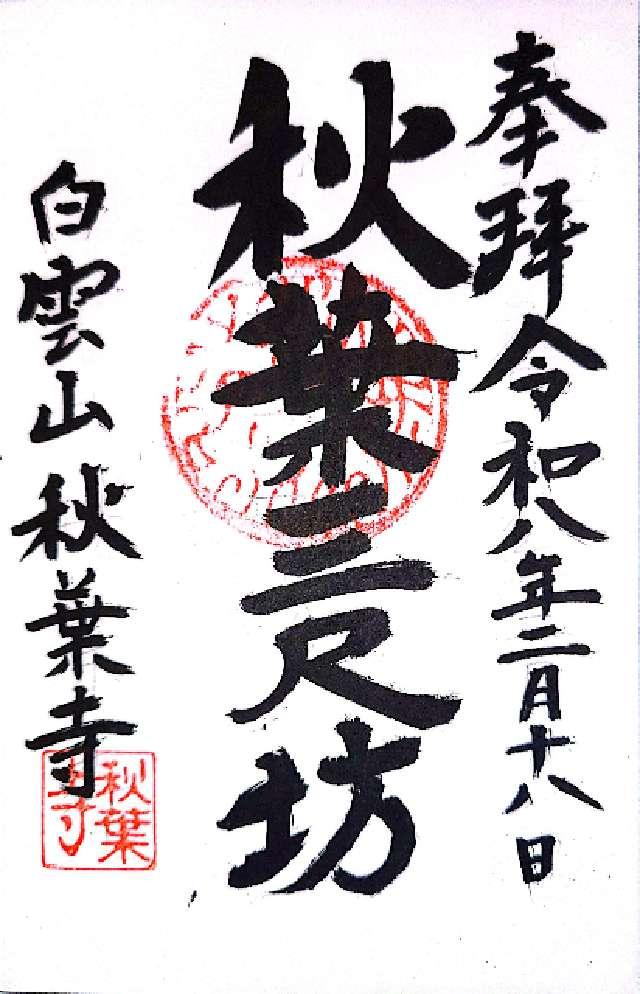 奉拜令和八年二月十八日
秋葉三尺坊
白雲山秋葉寺
秋葉
寺